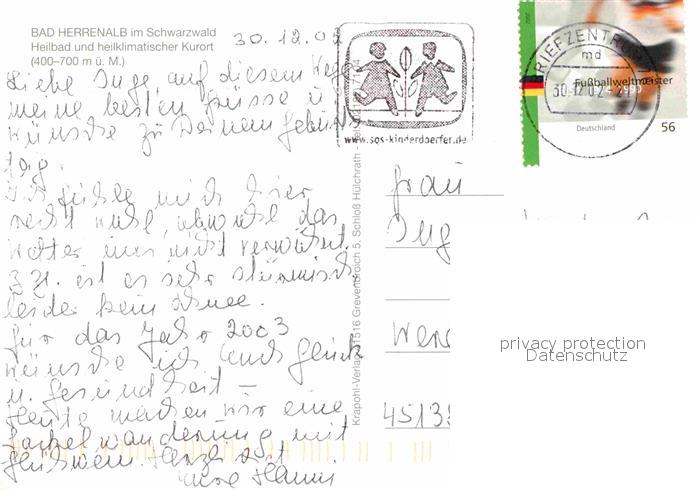 BAD HERRENALB im Schwarzwald
Heilbad und heilklimatischer Kurort
(400–700 m ü. M.)
30.12.02
Liebe Inge, auf diesem Wege
meine besten Grüsse u.
Wünsche zu Deinem Geburts
tag.
Ich fühle mich hier
recht wohl, obwohl das
Wetter uns nicht verwöhnt.
z.Zt. ist es sehr stürmisch,
leider kein Schnee.
Für das Jahr 2003
wünsche ich Euch Glück
u. Gesundheit –
Heute machen wir eine
Fackelwanderung mit
Glühwein. Herzlichst
Eure Hanni
www.sos-kinderdoerfer.de
Krapohl-Verlag, 41516 Grevenbroich 5, Schloß Hülchrath
BRIEFZENTRUM
md
30.12.02
Fußballweltmeister
1990
Deutschland
56
2002
Frau
Inge
4513
privacy protection
Datenschutz